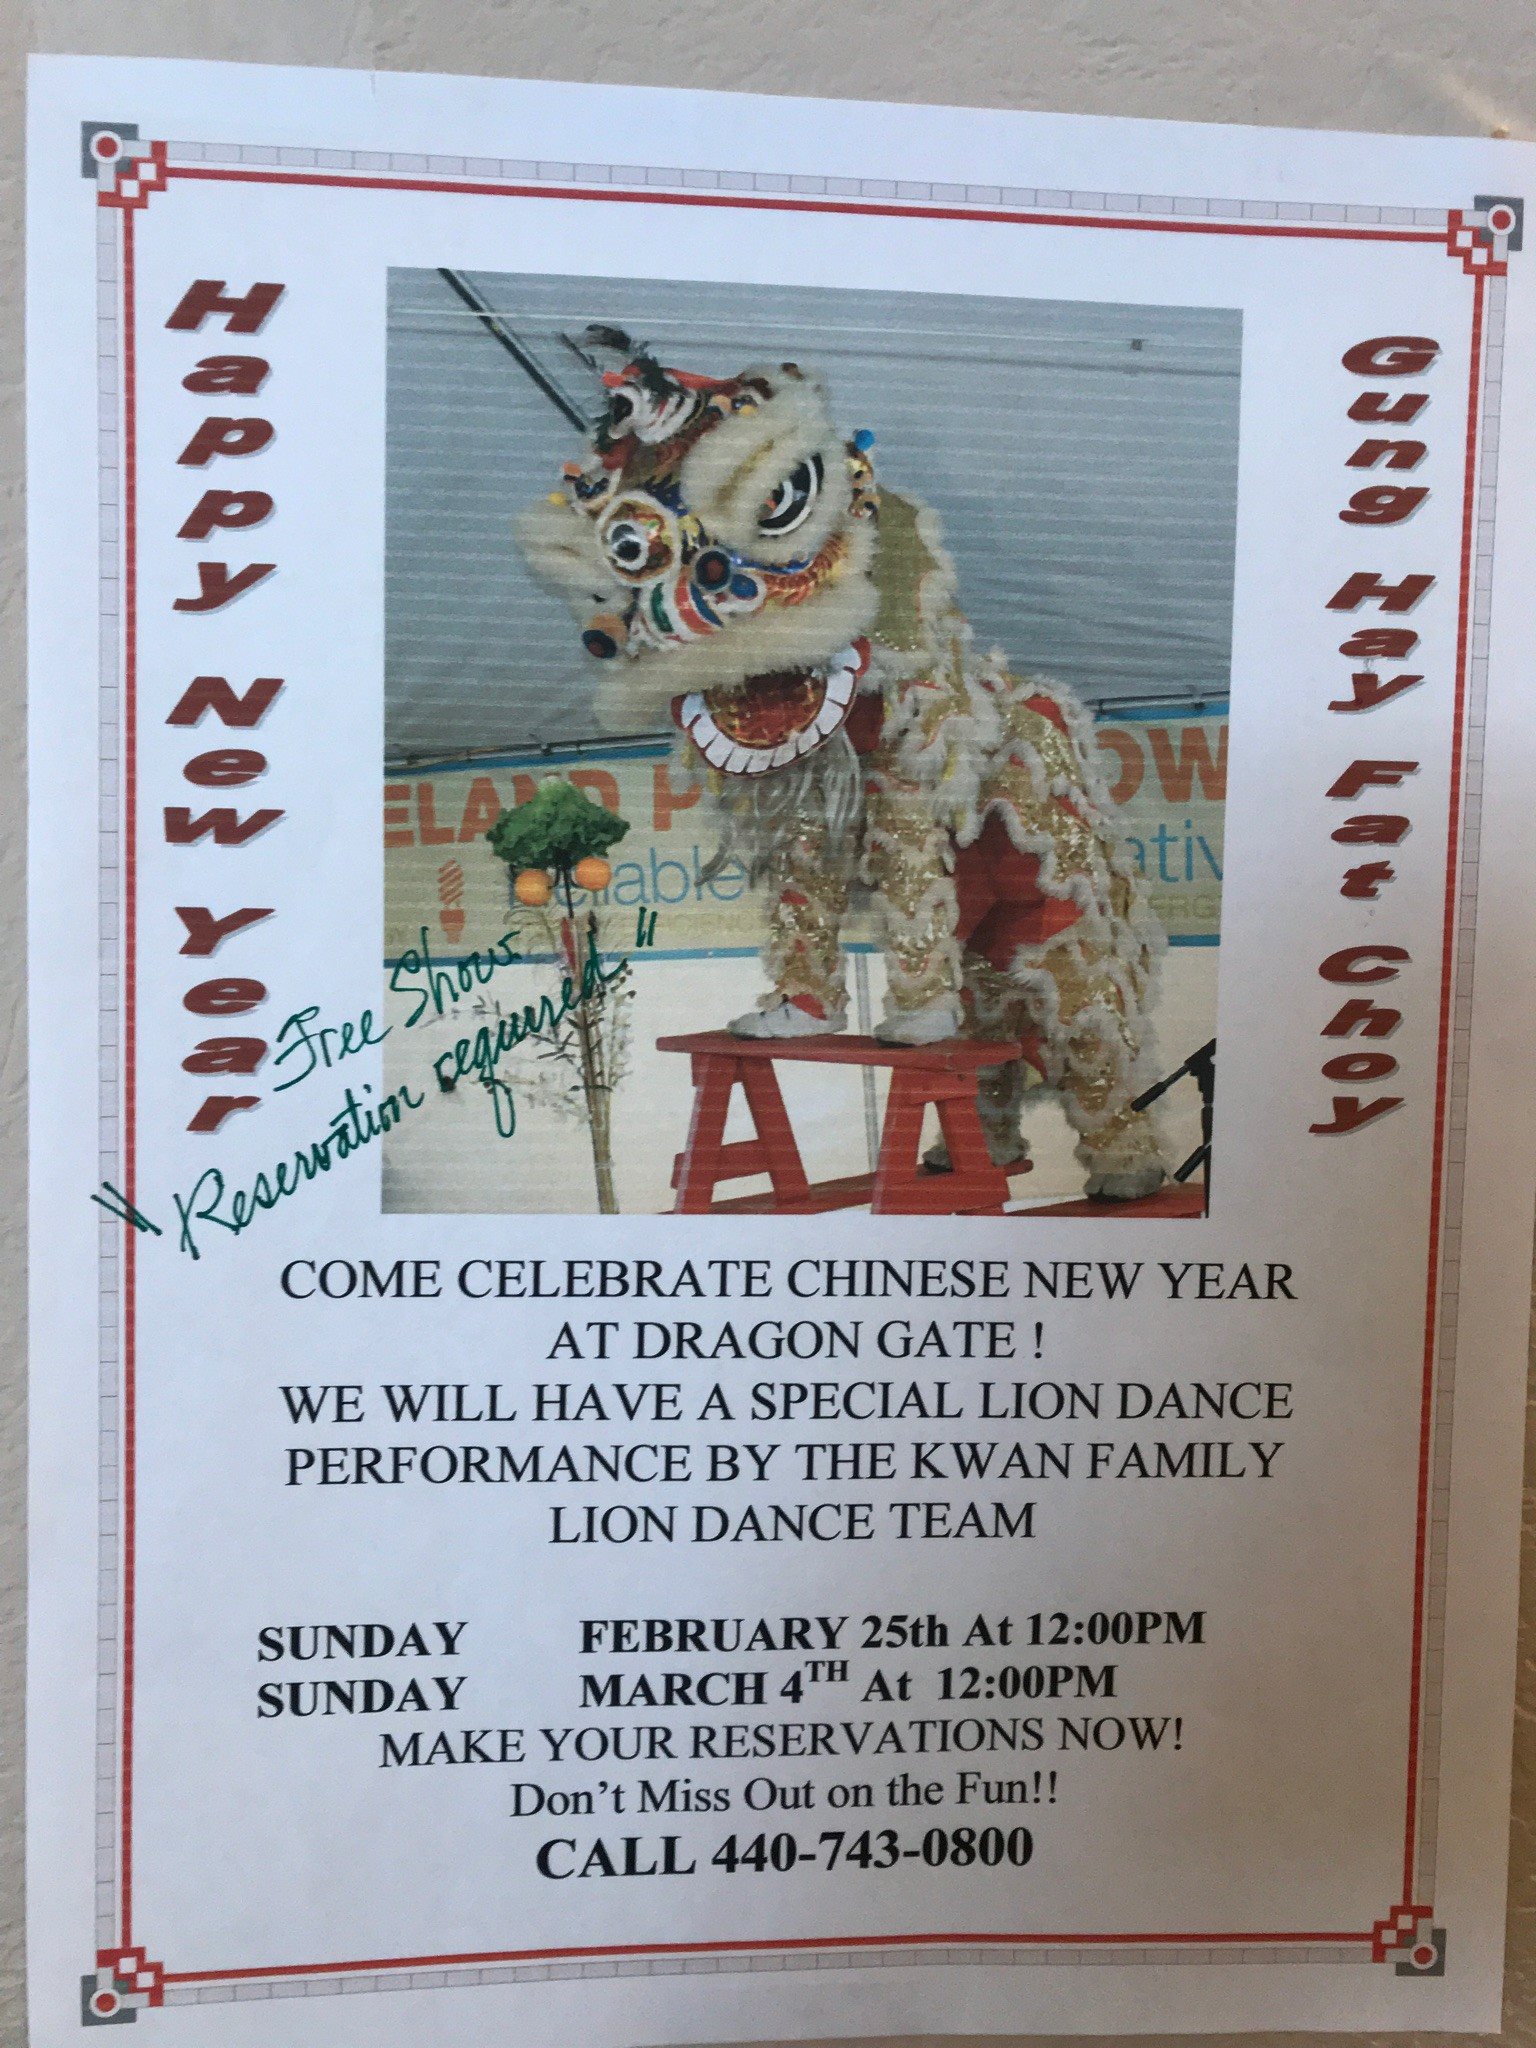 Happy New Year
Gung Hay Fat Choy
ELAND
OW
Reliable
ativ
ERG
Free Show.
"Reservation required"
COME CELEBRATE CHINESE NEW YEAR
AT DRAGON GATE !
WE WILL HAVE A SPECIAL LION DANCE
PERFORMANCE BY THE KWAN FAMILY
LION DANCE TEAM
SUNDAY FEBRUARY 25th At 12:00PM
SUNDAY MARCH 4TH At 12:00PM
MAKE YOUR RESERVATIONS NOW!
Don't Miss Out on the Fun!!
CALL 440-743-0800